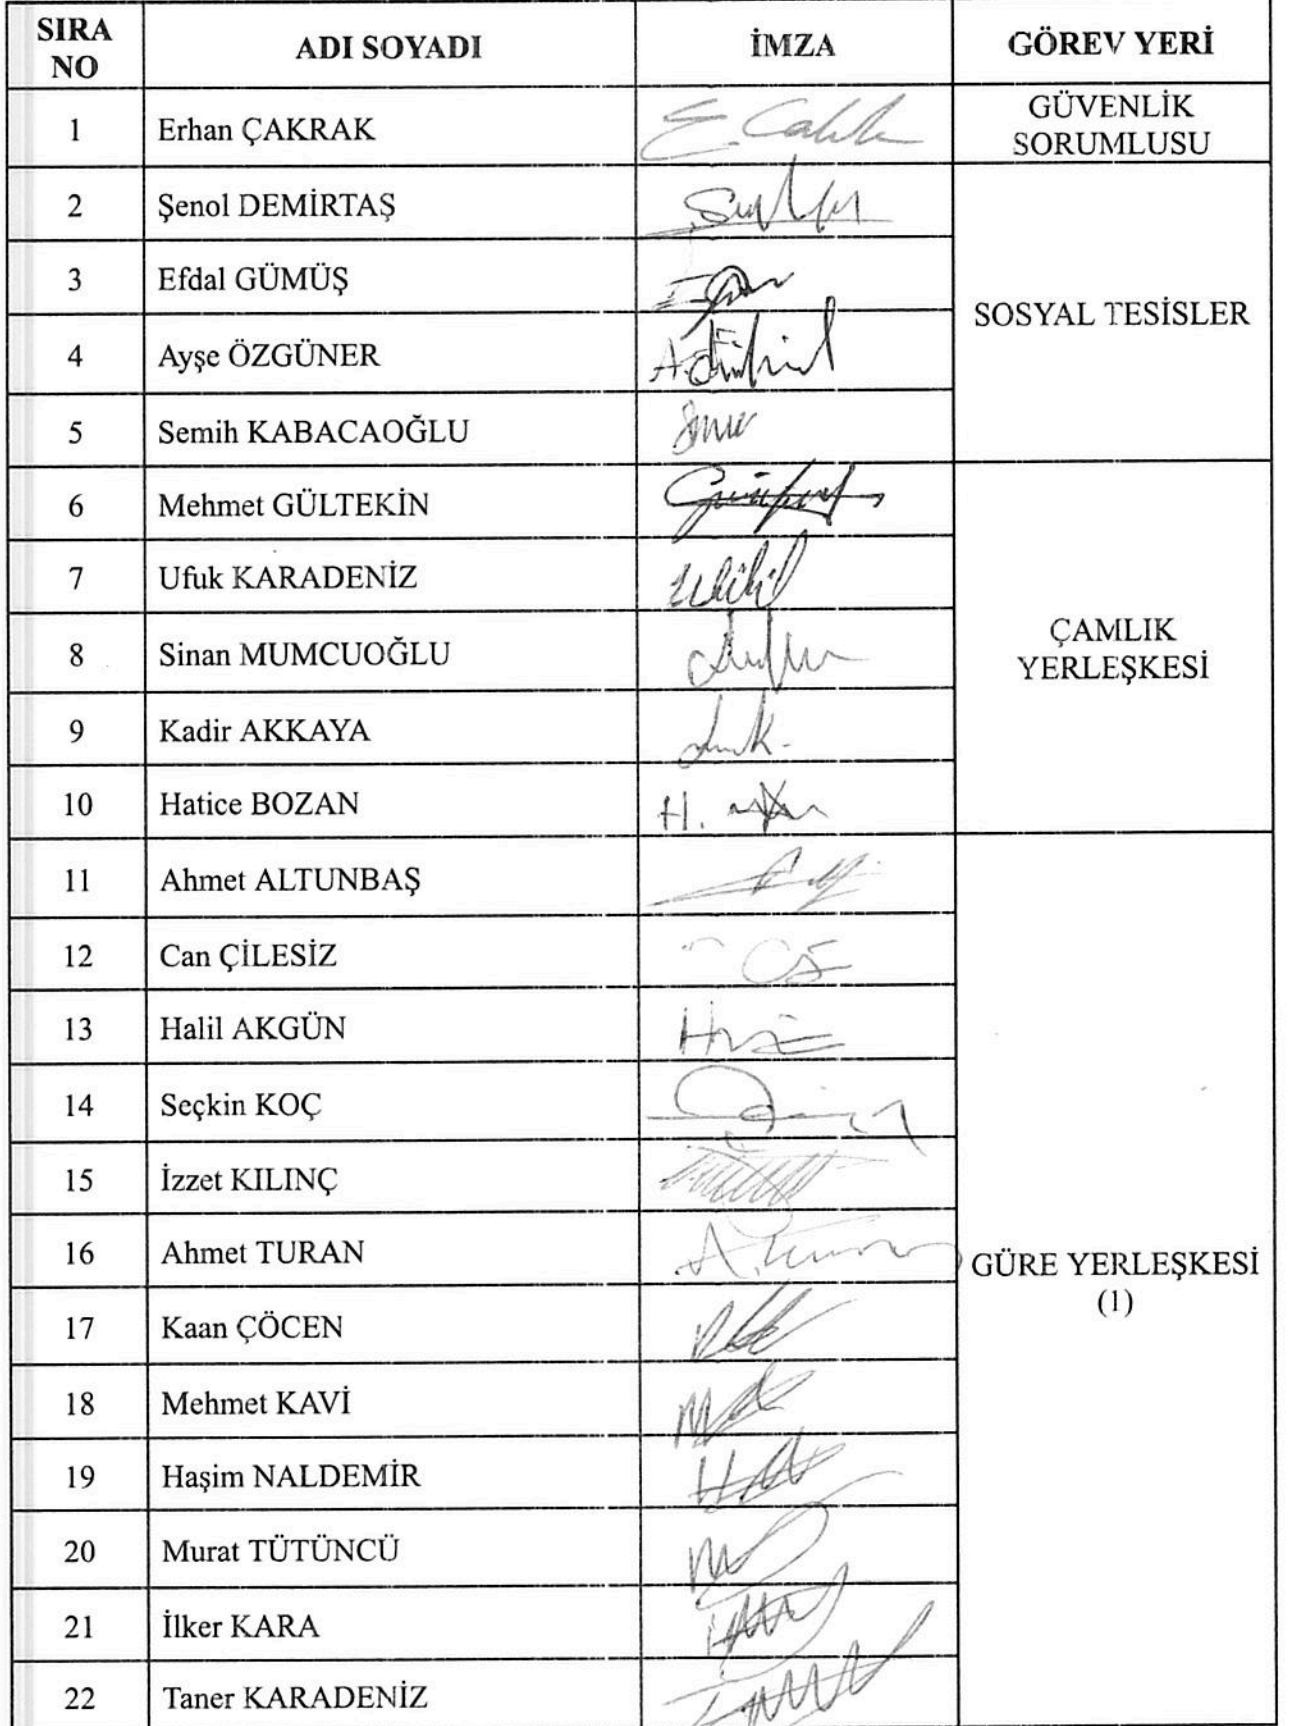 SIRA NO ADI SOYADI İMZA GÖREV YERİ
1 Erhan ÇAKRAK GÜVENLİK SORUMLUSU
2 Şenol DEMİRTAŞ SOSYAL TESİSLER
3 Efdal GÜMÜŞ
4 Ayşe ÖZGÜNER
5 Semih KABACAOĞLU
6 Mehmet GÜLTEKİN ÇAMLIK YERLEŞKESİ
7 Ufuk KARADENİZ
8 Sinan MUMCUOĞLU
9 Kadir AKKAYA
10 Hatice BOZAN
11 Ahmet ALTUNBAŞ GÜRE YERLEŞKESİ (1)
12 Can ÇİLESİZ
13 Halil AKGÜN
14 Seçkin KOÇ
15 İzzet KILINÇ
16 Ahmet TURAN
17 Kaan ÇÖCEN
18 Mehmet KAVİ
19 Haşim NALDEMİR
20 Murat TÜTÜNCÜ
21 İlker KARA
22 Taner KARADENİZ